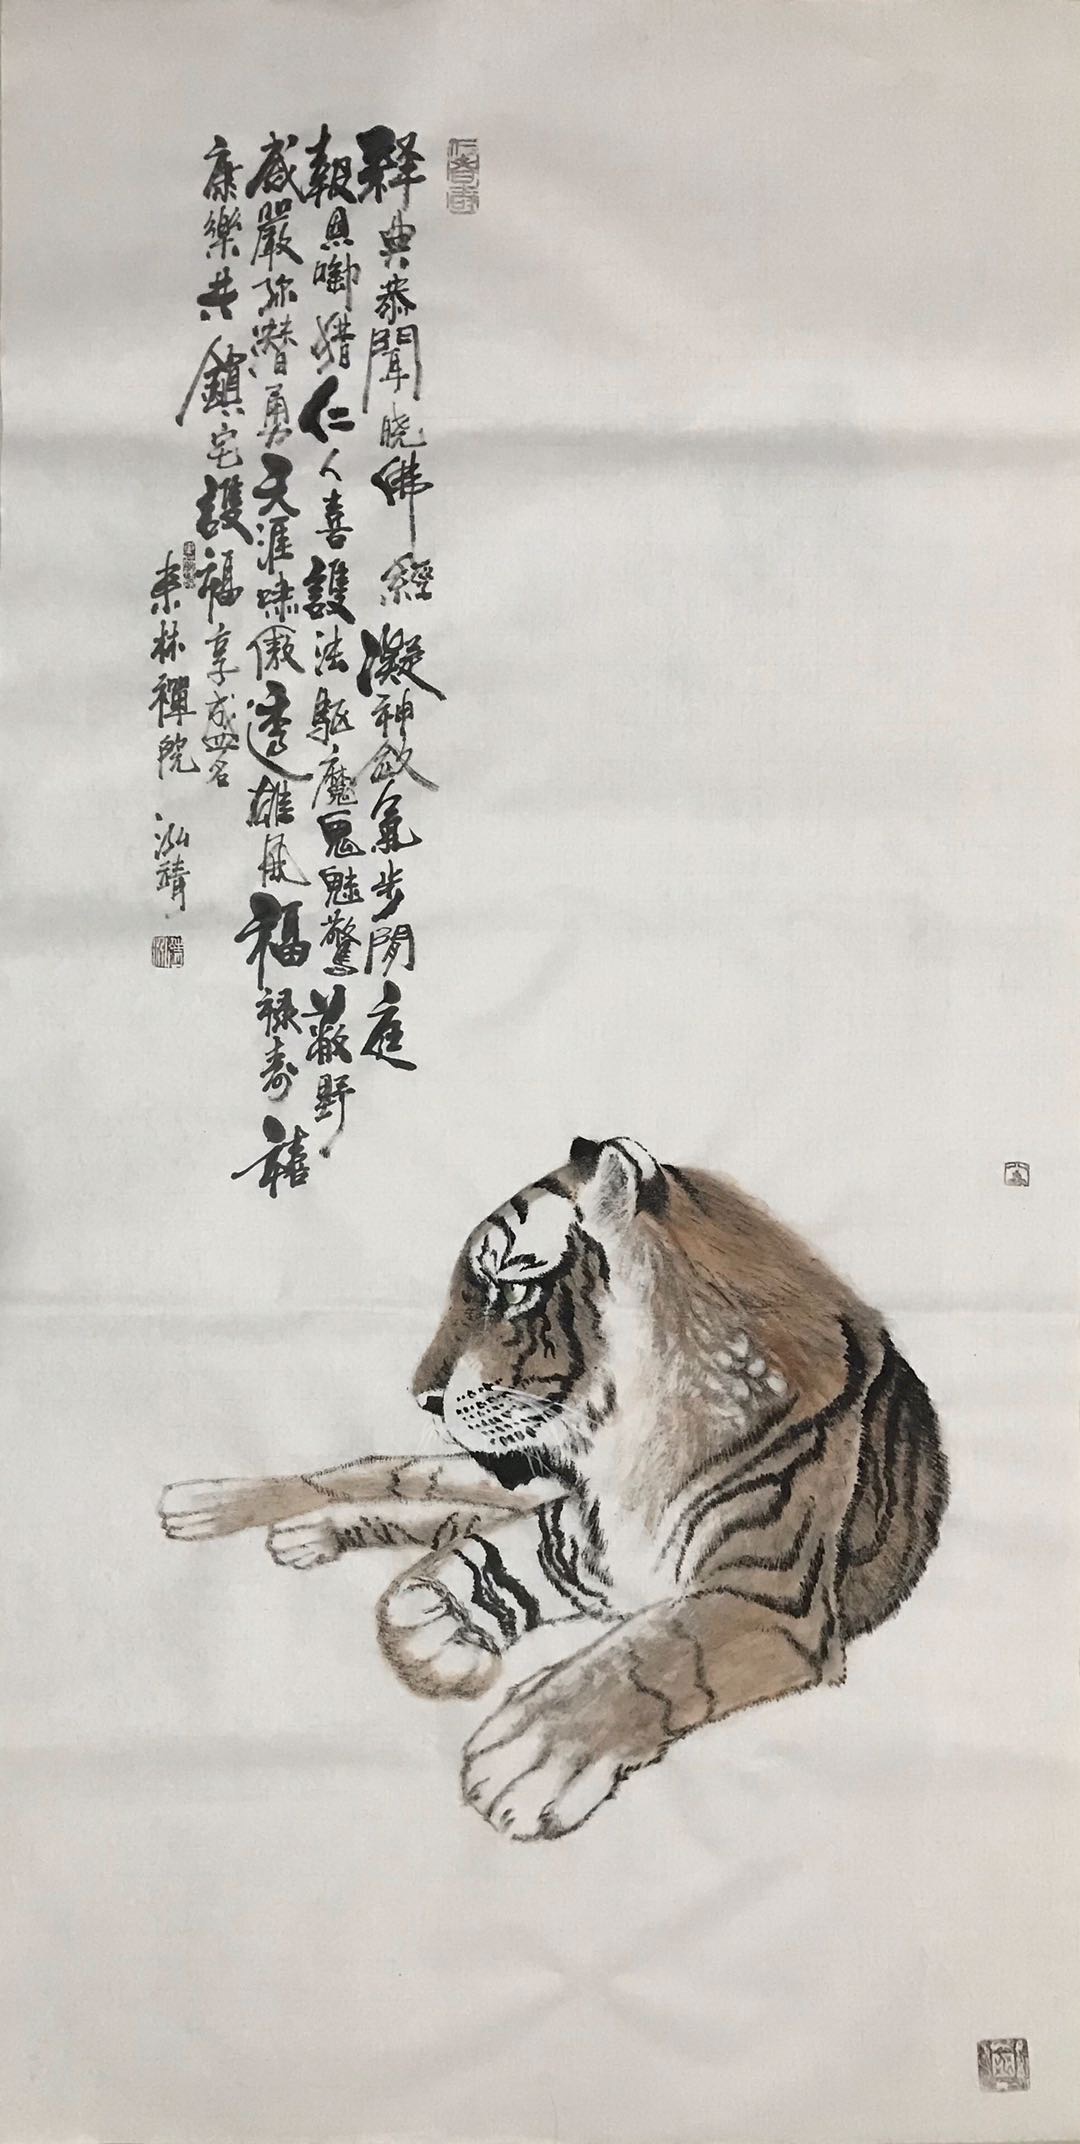 释典恭聞晓佛經凝神斂氣步閒庭
報恩啣猎仁人喜護法駆魔鬼魅驚蔽野
威嚴弥潜勇天涯啸傲透雄風福禄寿禧
康樂共鎮宅護福享盛名
林禪院 泓靖